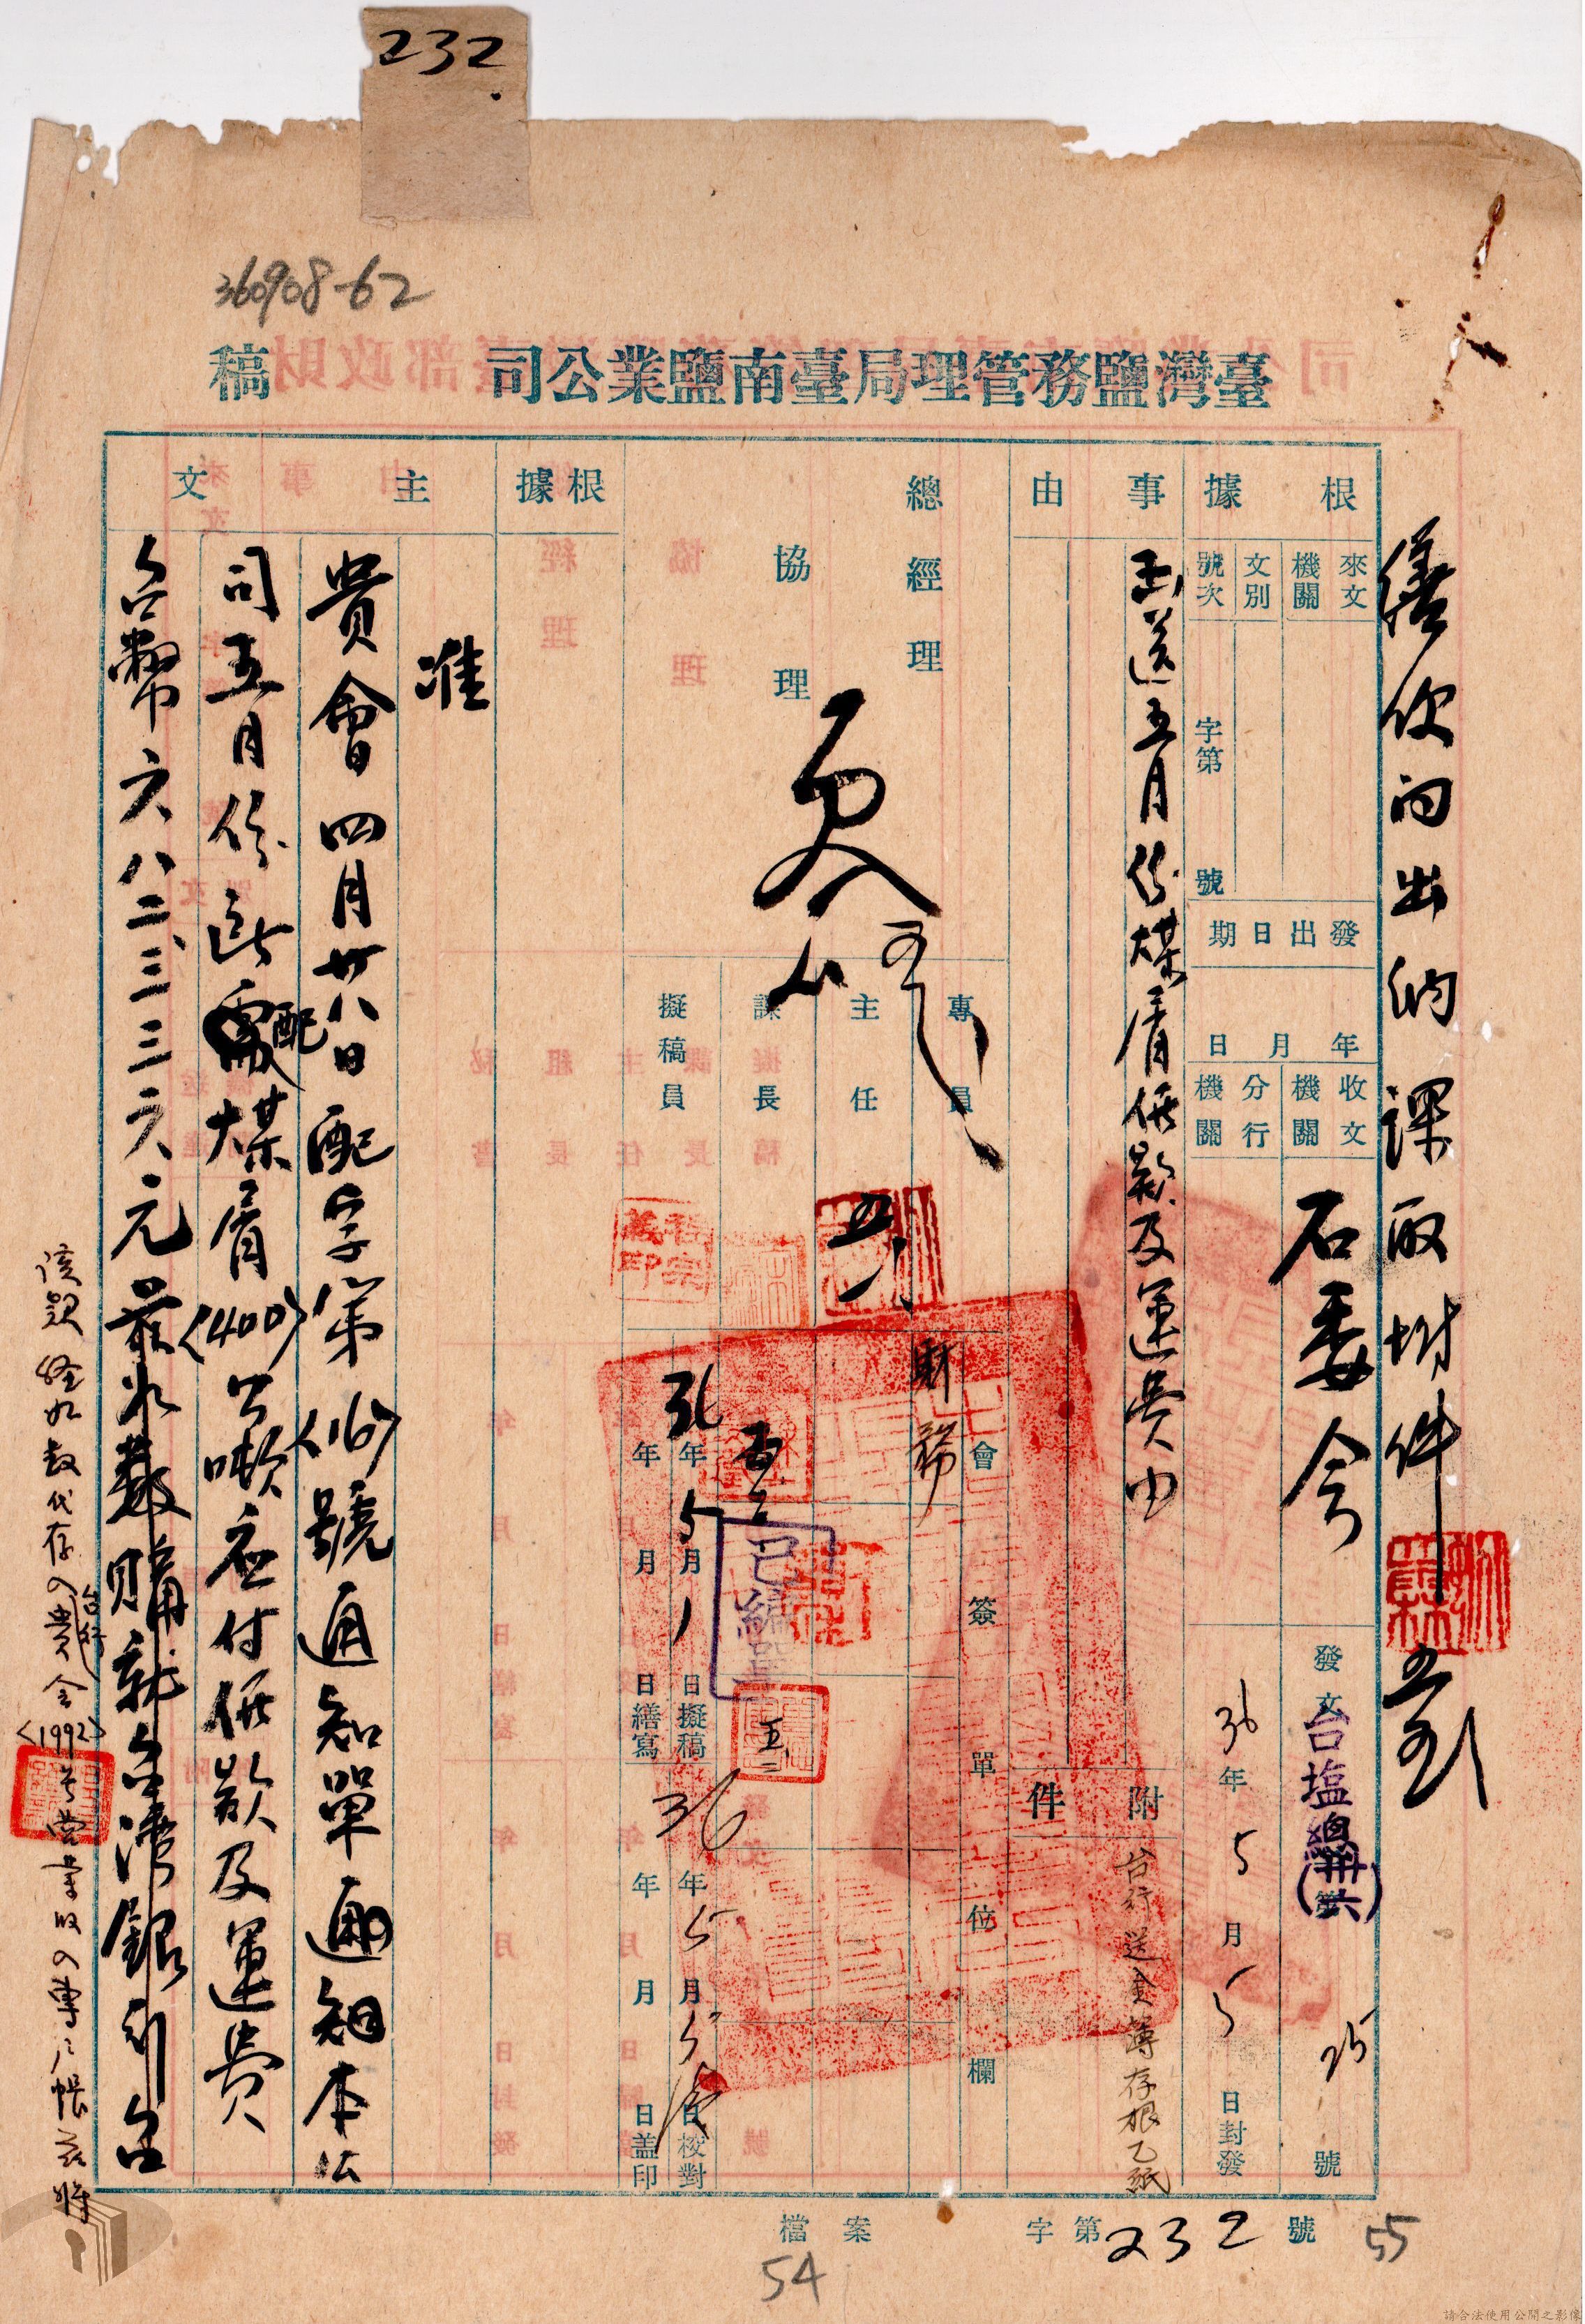 232
360908-62
臺灣鹽務管理局臺南鹽業公司 稿
繕後向出納課取附件
根據
來文機關
文別
號次 字第 號
發出日期
年 月 日
收文機關 石委会
分行機關
發文台塩總(卅六)第 25 號
36年5月5日封發
事由
函送五月份煤屑価款及運費由
附件
台行送金簿存根乙紙
總經理
協理
專員
主任 五、
課長
擬稿員
會簽單位欄
財務
已編號
五、二
36年5月1日擬稿
年 月 日繕寫
36年5月5日校對
年 月 日蓋印
根據
主文
准
貴會四月廿八日配字第<16>號通知單通知本公
司五月份配煤屑<400>公噸應付価款及運費
台幣六八二、三三六元
就台湾銀行台
該款経如数代存入台行貴会<1992>号営業收入專户帳茲將
檔案 字第232號
54
55
請合法使用公開之影像